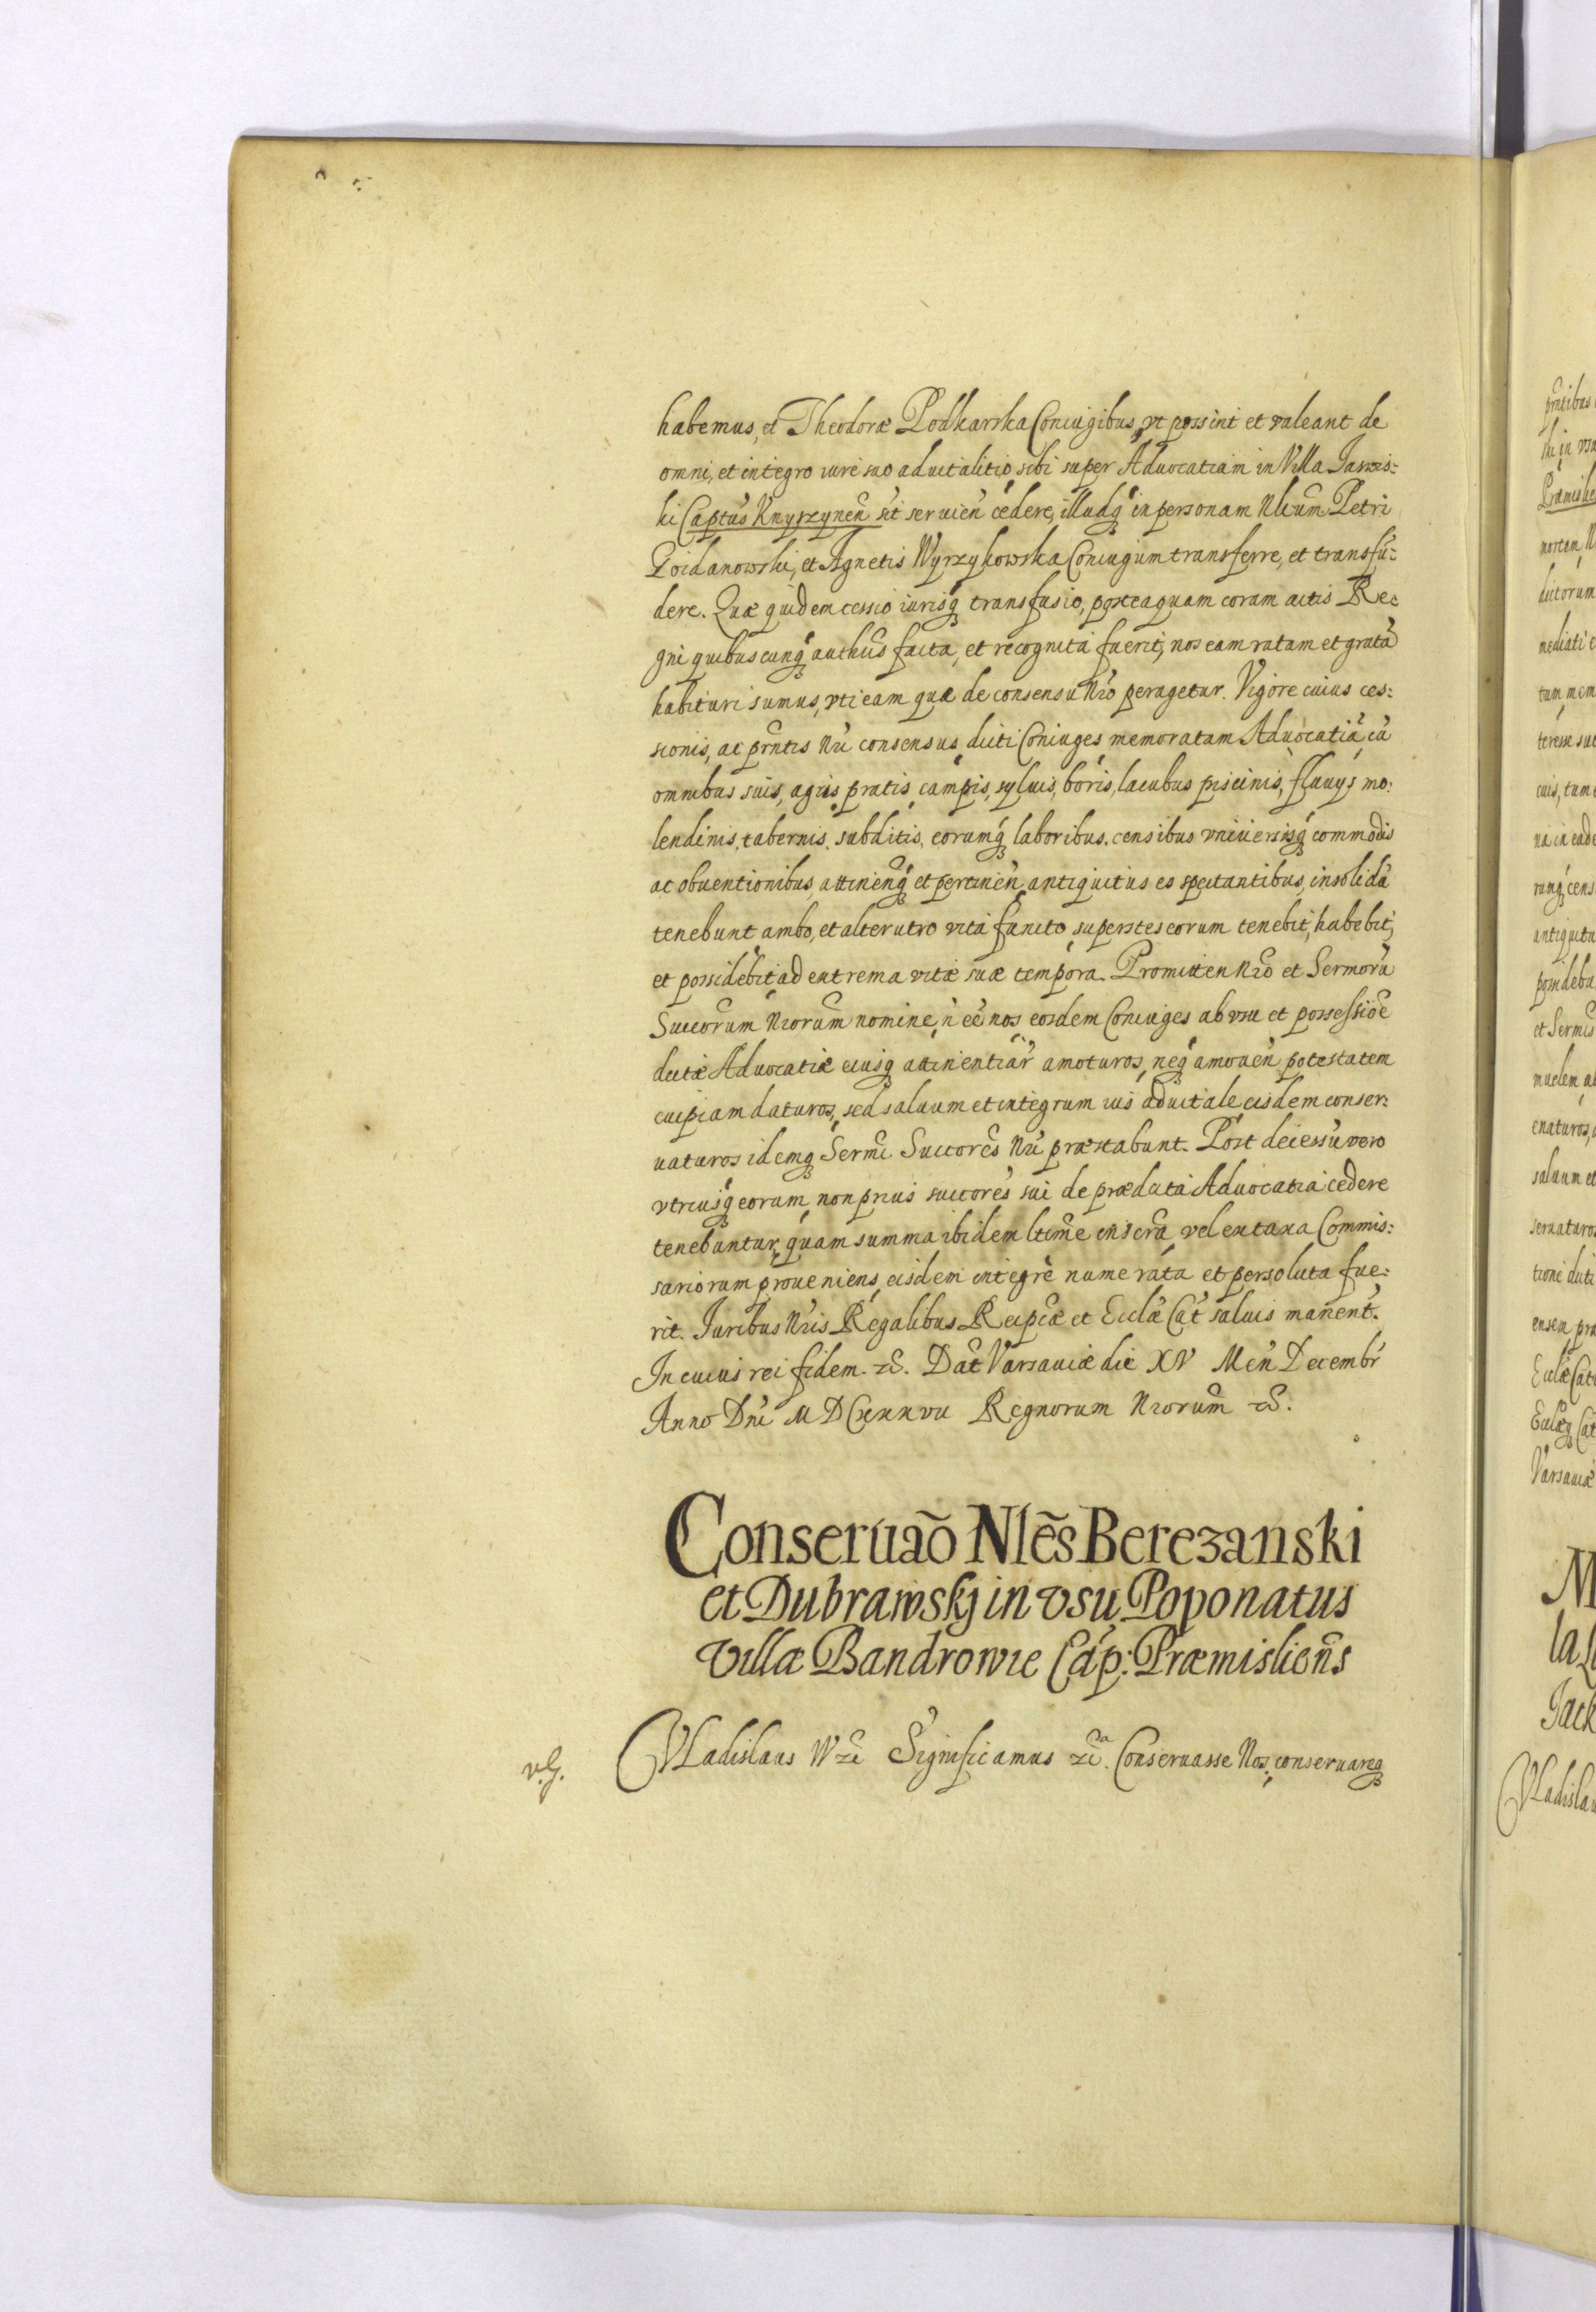 habemus, et Theodoræ Podkarska Coniugibus, vt possint et valeant de
omni, et integro iure suo aduitalitio sibi super Aduocatiam in Villa Jaswis:
ki Captus Knyszynen̄ sit seruien̄ cedere, illudq́ in personam Nlium Petri
Zoidanowski, et Agnetis Wyrzykowska Coniugum transferre, et transfū:
dere. Quæ quidem cessio iurisq́ transfusio, posteaquam coram actis Re:
gni quibuscunq́ authen̄s facta, et recognita fuerit, nos eam ratam et gratā
habituri sumus, vti eam quæ de consensu Nr̄o peragetur. Vigore cuius ces:
sionis, ac pr̄ntis Nr̄i consensus, dicti Coniuges memoratam Aduocatiā cū
omnibus suis, agris pratis, campis, syluis, boris, lacubus piscinis, fluuys mo:
lendinis, tabernis, subditis, eorumq́ laboribus, censibus vniuersisq́ commodis
ac obuentionibus, attinen̄q́ et pertinen̄ antiquitus eo spectantibus, in solidū
tenebunt ambo, et alterutro vita functo, superstes eorum tenebit, habebit,
et possidebit ad extrema vitæ suæ tempora. Promitten̄ Nr̄o et Sermorū
Succorum Nrorum nomine, n̄ eē nos eosdem Coniuges ab vsu et possessioē
dictæ Aduocatiæ eiusq́ attinentiar̄ amoturos, neq́ amouen̄ potestatem
cuipiam daturos, sed saluum et integrum ius aduitale eisdem conser:
uaturos idemq́ Sermi Succorēs Nr̄i præstabunt. Post decessū vero
vtriusq́ eorum, non prius succorēs sui de prædicta Aduocatia cedere
tenebuntur, quam summa ibidem ltime inscra vel ex taxa Commis:
sariorum proueniens, eisdem integrè numerata et persoluta fue:
rit. Juribus Nr̄is Regalibus Reipcæ et Ecclæ Cat̄ saluis manent̄.
In cuius rei fidem. zc̄. Dat̄ Varsauiæ die XV Men̄ Decembr̄
Anno Dn̄i MDCxxxvii Regnorum Nrorum zc̄.
Conseruaō Nlēs Berezanski
et Dubrawskj in vsu Poponatus
Villæ Bandrowie Cap: Præmislien̄s
v.G. Vladislaus IV zc̄ Significamus zc̄ᵃ. Conseruasse Nos, conseruareq́